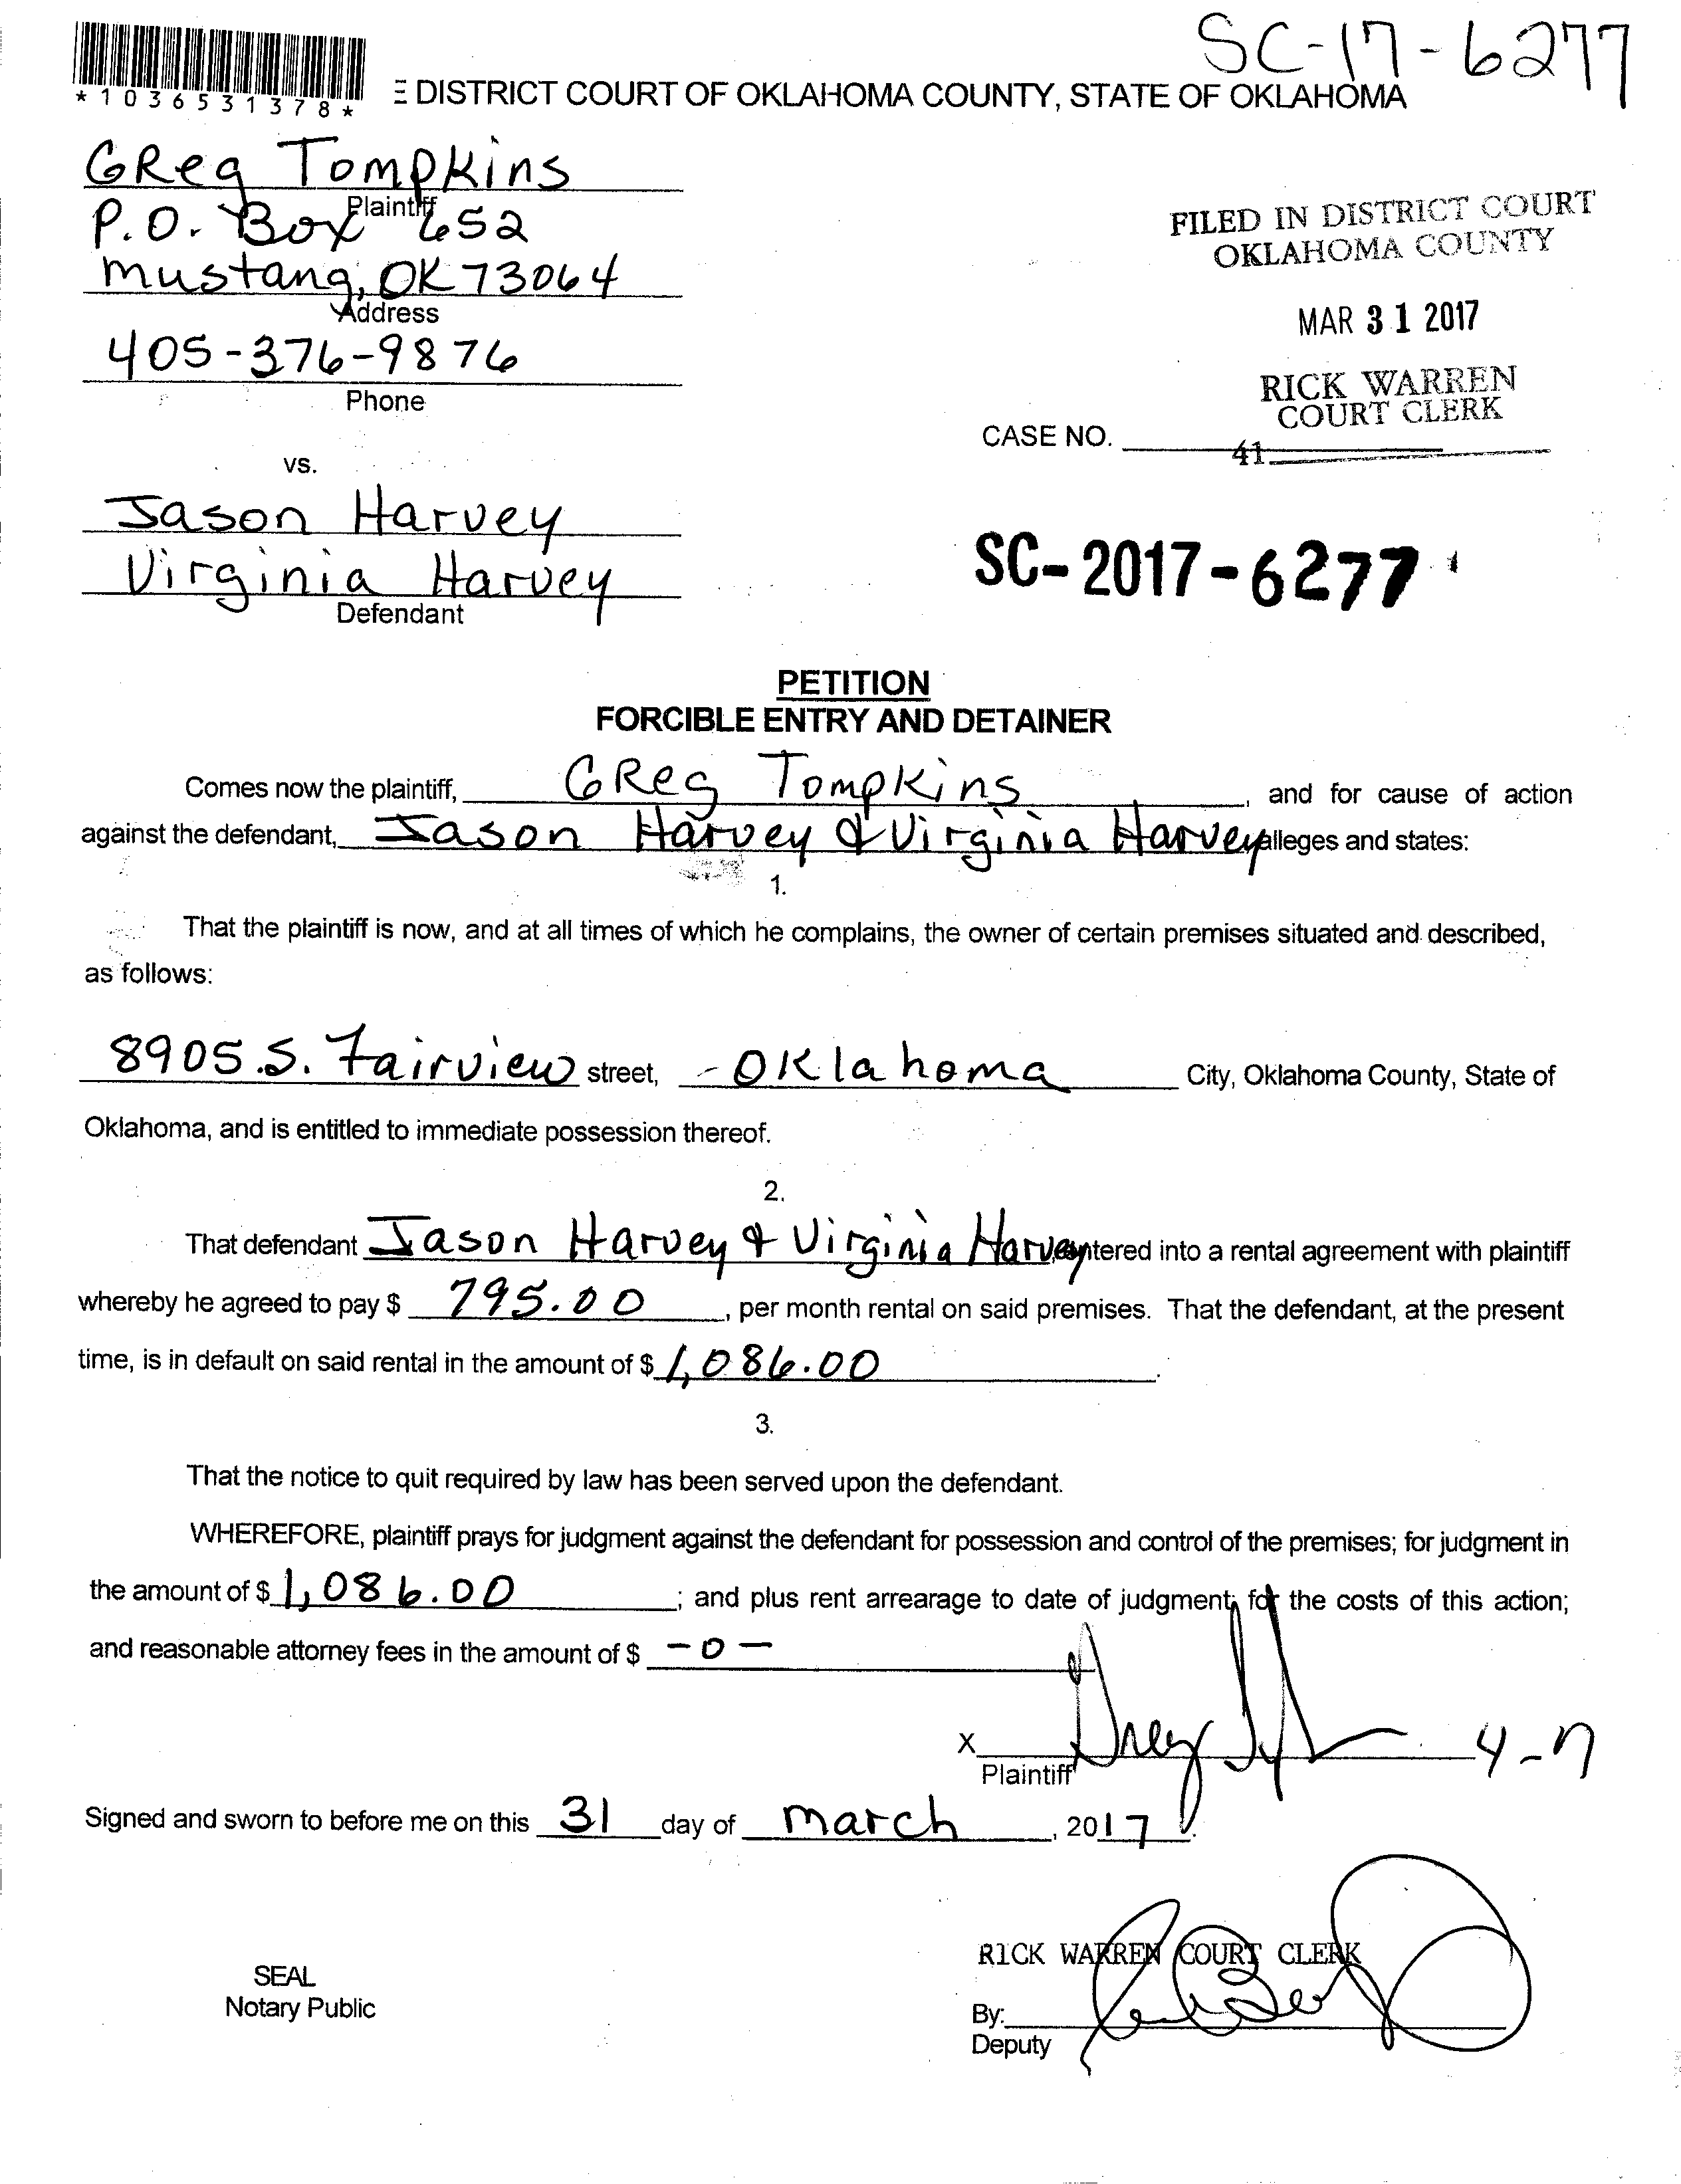 SC-17-6277
*1036531378*
E DISTRICT COURT OF OKLAHOMA COUNTY, STATE OF OKLAHOMA
GReg Tompkins
Plaintiff
P.O. Box 652
mustang, OK 73064
Address
405-376-9876
Phone
FILED IN DISTRICT COURT
OKLAHOMA COUNTY
MAR 31 2017
RICK WARREN
COURT CLERK
CASE NO.
41
vs.
Jason Harvey
Virginia Harvey
Defendant
SC-2017-6277
PETITION
FORCIBLE ENTRY AND DETAINER
Comes now the plaintiff, GReg Tompkins, and for cause of action
against the defendant, Jason Harvey & Virginia Harvey alleges and states:
1.
That the plaintiff is now, and at all times of which he complains, the owner of certain premises situated and described,
as follows:
8905 S. Fairview street, - Oklahoma City, Oklahoma County, State of
Oklahoma, and is entitled to immediate possession thereof.
2.
That defendant Jason Harvey & Virginia Harvey entered into a rental agreement with plaintiff
whereby he agreed to pay $ 795.00, per month rental on said premises. That the defendant, at the present
time, is in default on said rental in the amount of $ 1,086.00.
3.
That the notice to quit required by law has been served upon the defendant.
WHEREFORE, plaintiff prays for judgment against the defendant for possession and control of the premises; for judgment in
the amount of $ 1,086.00; and plus rent arrearage to date of judgment; for the costs of this action;
and reasonable attorney fees in the amount of $ -0-
X
Plaintiff
Signed and sworn to before me on this 31 day of march, 2017.
RICK WARREN COURT CLERK
SEAL
Notary Public
By:
Deputy